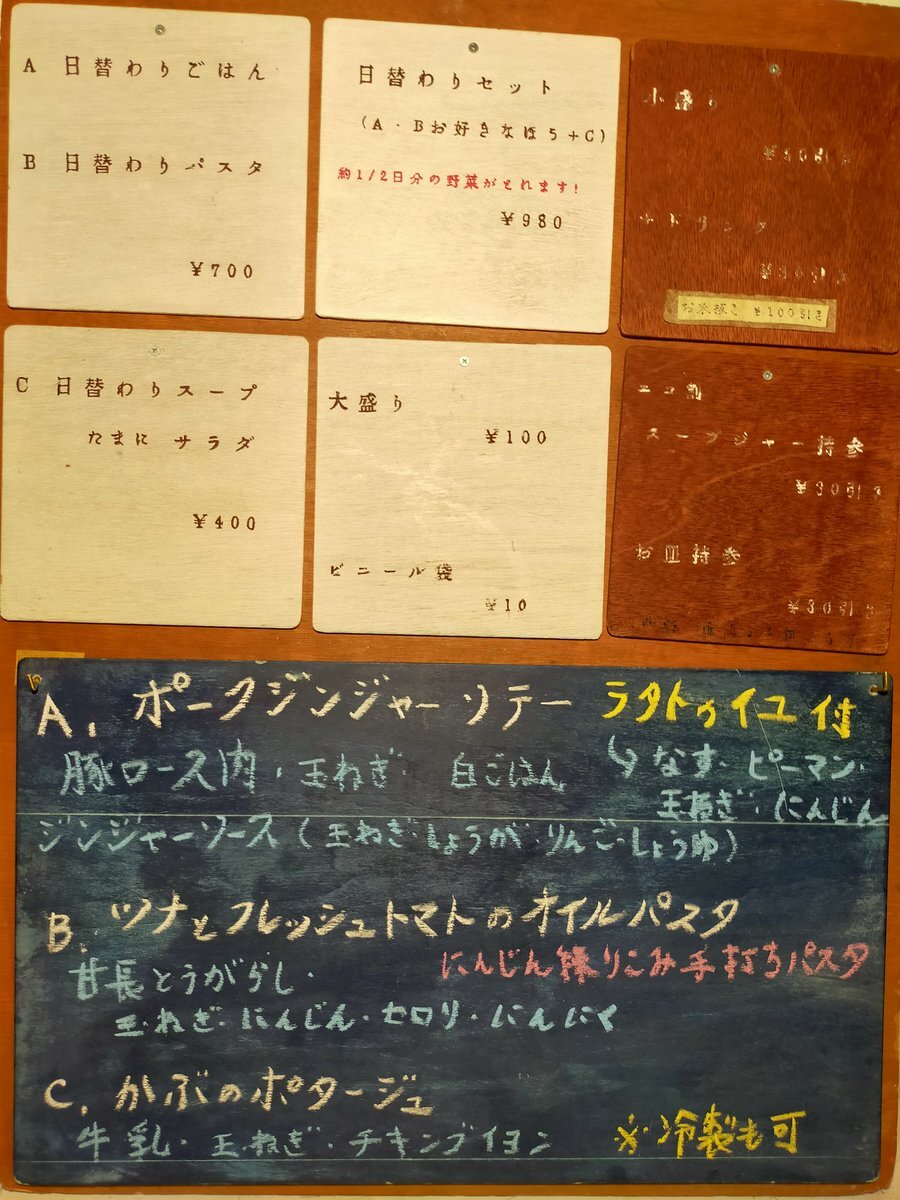 A 日替わりごはん
B 日替わりパスタ
¥700
日替わりセット
(A・Bお好きなほう+C)
約1/2日分の野菜がとれます!
¥980
小盛り
¥50引き
+ドリンク
引き
お米抜き ¥100引き
C 日替わりスープ
たまに サラダ
¥400
大盛り
¥100
ビニール袋
¥10
エコ割
スープジャー持参
¥30引き
お皿持参
¥30引き
A. ポークジンジャーソテー ラタトゥイユ付
豚ロース肉・玉ねぎ・ 白ごはん
↳なす・ピーマン・
玉ねぎ・にんじん
ジンジャーソース(玉ねぎ・しょうが・りんご・しょうゆ)
B. ツナとフレッシュトマトのオイルパスタ
にんじん練りこみ手打ちパスタ
甘長とうがらし・
玉ねぎ・にんじん・セロリ・にんにく
C. かぶのポタージュ
牛乳・玉ねぎ・チキンブイヨン ※冷製も可